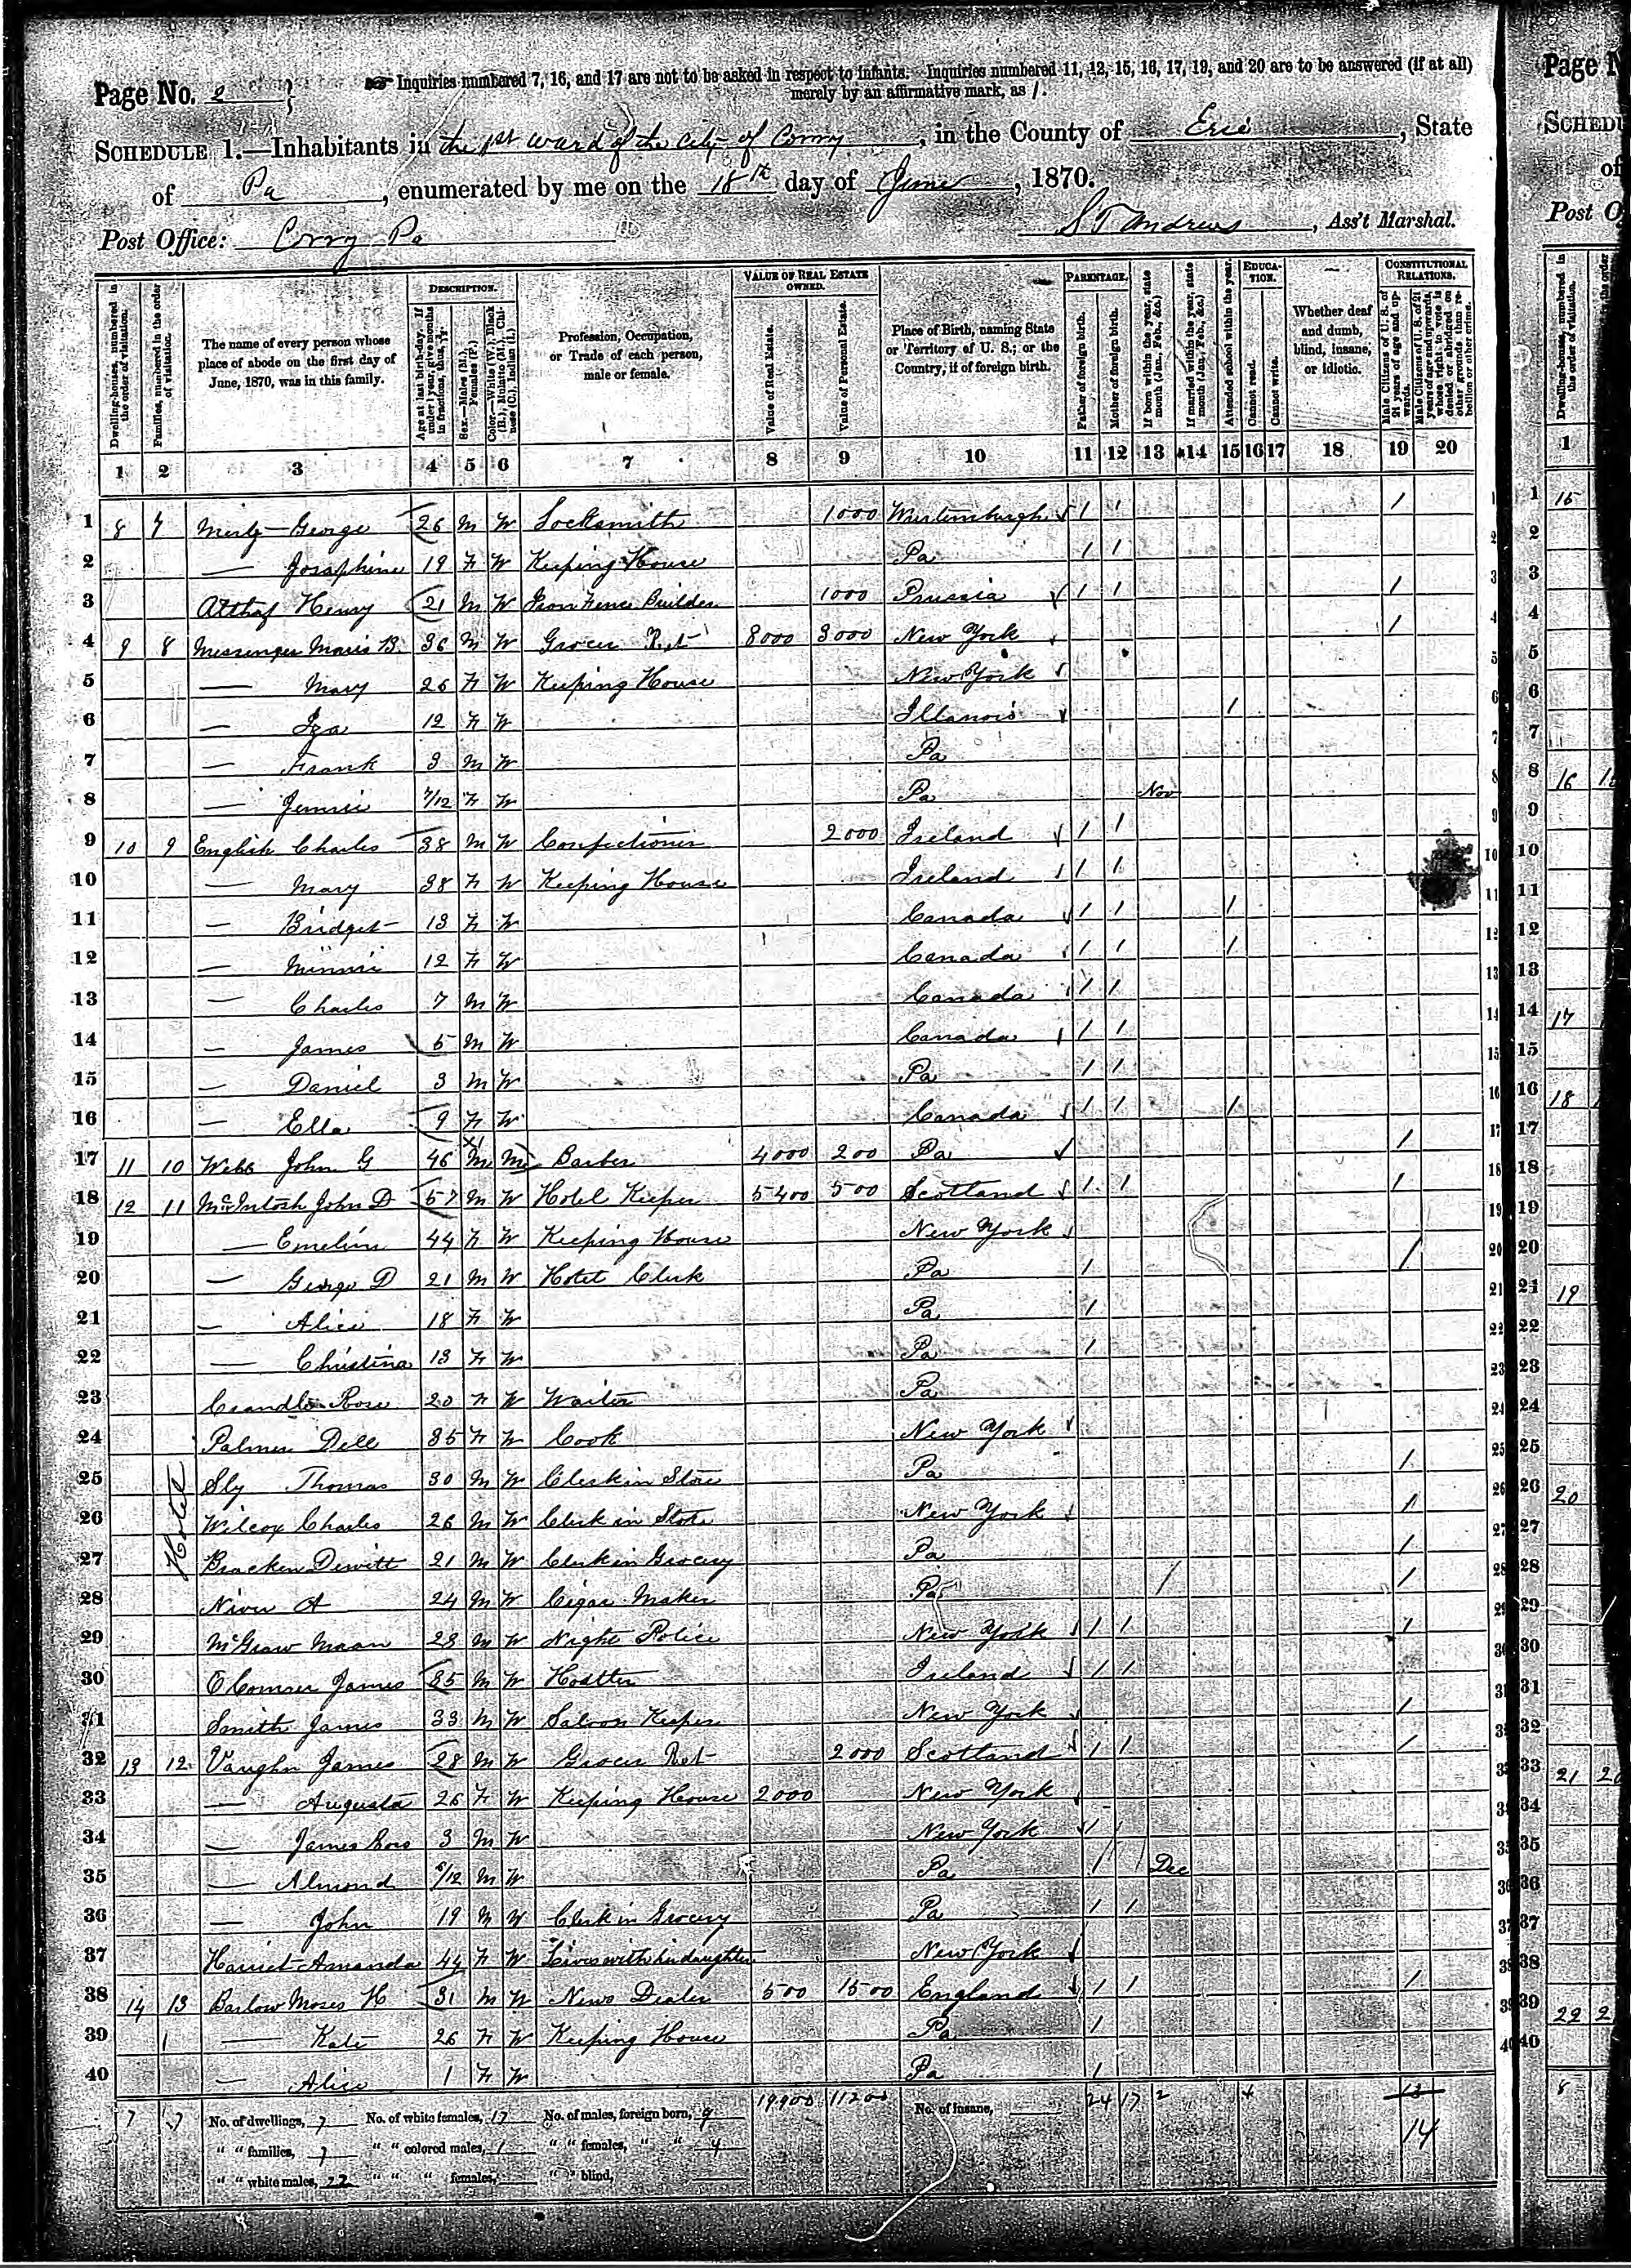 Page No. 2
Inquiries numbered 7, 16, and 17 are not to be asked in respect to infants. Inquiries numbered 11, 12, 15, 16, 17, 19, and 20 are to be answered (if at all)
merely by an affirmative mark, as /.
SCHEDULE 1.—Inhabitants in the 1st ward of the city of Corry, in the County of Erie, State
of Pa, enumerated by me on the 18th day of June, 1870.
Post Office: Corry Pa
S T Andrews, Ass't Marshal.
Dwelling-houses, numbered in the order of visitation.
Families, numbered in the order of visitation.
The name of every person whose place of abode on the first day of June, 1870, was in this family.
DESCRIPTION.
Age at last birth-day. If under 1 year, give months in fractions, thus, 3/12
Sex.—Males (M.), Females (F.)
Color.—White (W.), Black (B.), Mulatto (M.), Chinese (C.), Indian (I.)
Profession, Occupation, or Trade of each person, male or female.
VALUE OF REAL ESTATE OWNED.
Value of Real Estate.
Value of Personal Estate.
Place of Birth, naming State or Territory of U. S.; or the Country, if of foreign birth.
PARENTAGE.
Father of foreign birth.
Mother of foreign birth.
If born within the year, state month (Jan., Feb., &c.)
If married within the year, state month (Jan., Feb., &c.)
EDUCATION.
Attended school within the year.
Cannot read.
Cannot write.
Whether deaf and dumb, blind, insane, or idiotic.
CONSTITUTIONAL RELATIONS.
Male Citizens of U. S. of 21 years of age and upwards.
Male Citizens of U. S. of 21 years of age and upwards, whose right to vote is denied or abridged on other grounds than rebellion or other crime.
1 2 3 4 5 6 7 8 9 10 11 12 13 14 15 16 17 18 19 20
1 8 7 George 26 M W Locksmith 1000 Wurtemburgh / / /
2 — Josephine 19 F W Keeping House Pa / /
3 Henry 21 M W Iron Fence Builder 1000 Prussia / / /
4 9 8 Messenger B. 36 M W Grocer Ret 8000 3000 New York /
5 — Mary 26 F W Keeping House New York
6 — Iza 12 F W Illanois /
7 — Frank 3 M W Pa
8 — Jennie 7/12 F W Pa Nov
9 10 9 English Charles 38 M W Confectioner 2000 Ireland / /
10 — Mary 38 F W Keeping House Ireland / /
11 — Bridget 13 F W Canada / / /
12 — Minnie 12 F W Canada / / /
13 — Charles 7 M W Canada / /
14 — James 5 M W Canada / /
15 — Daniel 3 M W Pa / /
16 — Ella 9 F W Canada / / /
17 11 10 Webb John G 46 M Barber 4000 200 Pa /
18 12 11 McIntosh John D 57 M W Hotel Keeper 5400 500 Scotland / / /
19 — Emeline 44 F W Keeping House New York
20 — George D 21 M W Hotel Clerk Pa / /
21 — Alice 18 F W Pa /
22 — Christina 13 F W Pa /
23 Rose 20 F W Waiter Pa
24 Palmer Dell 35 F W Cook New York
Hotel
25 Sly Thomas 30 M W Clerk in Store Pa /
26 Wilcox Charles 26 M W Clerk in Store New York /
27 Bracken Dewitt 21 M W Clerk in Grocery Pa /
28 Niver A 24 M W Cigar Maker Pa / /
29 McGraw 28 M W Night Police New York / / /
30 James 35 M W Ireland / /
31 Smith James 33 M W Saloon Keeper New York /
32 13 12 Vaughn James 28 M W Grocer Ret 2000 Scotland / / /
33 — Augusta 26 F W Keeping House 2000 New York
34 — James Ross 3 M W New York /
35 — Almond 6/12 M W Pa / Dec
36 — John 19 M W Clerk in Grocery Pa / /
37 Amanda 44 F W Lives with her daughter New York
38 14 13 Barlow Moses H 31 M W News Dealer 500 1500 England / / /
39 — Kate 26 F W Keeping House Pa /
40 — Alice 1 F W Pa /
7 7 No. of dwellings, 7 No. of white females, 17 No. of males, foreign born, 9 19900 11200 No. of insane, 24 17 2 4 13
" " families, 7 " " colored males, 1 " " females, " " 4 14
" " white males, 22 " " " females, " " blind,